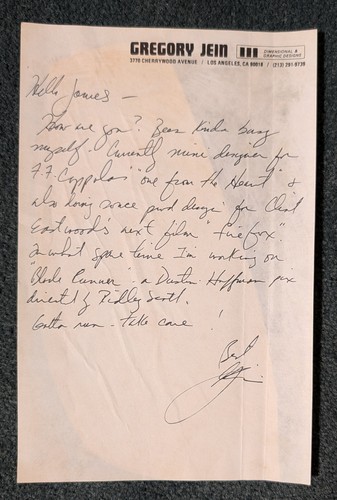 GREGORY JEIN
DIMENSIONAL &
GRAPHIC DESIGNS
3776 CHERRYWOOD AVENUE / LOS ANGELES, CA 90018 / (213) 291-9739
Hello James —
How are you? Been kinda busy
myself. Currently mini designer for
F.F. Coppola's "One from the Heart" &
also doing some prod design for Clint
Eastwood's next film "Firefox".
In what spare time I'm working on
"Blade Runner" - a Dustin Hoffman pix
directed by Ridley Scott.
Gotta run - take care !
Best